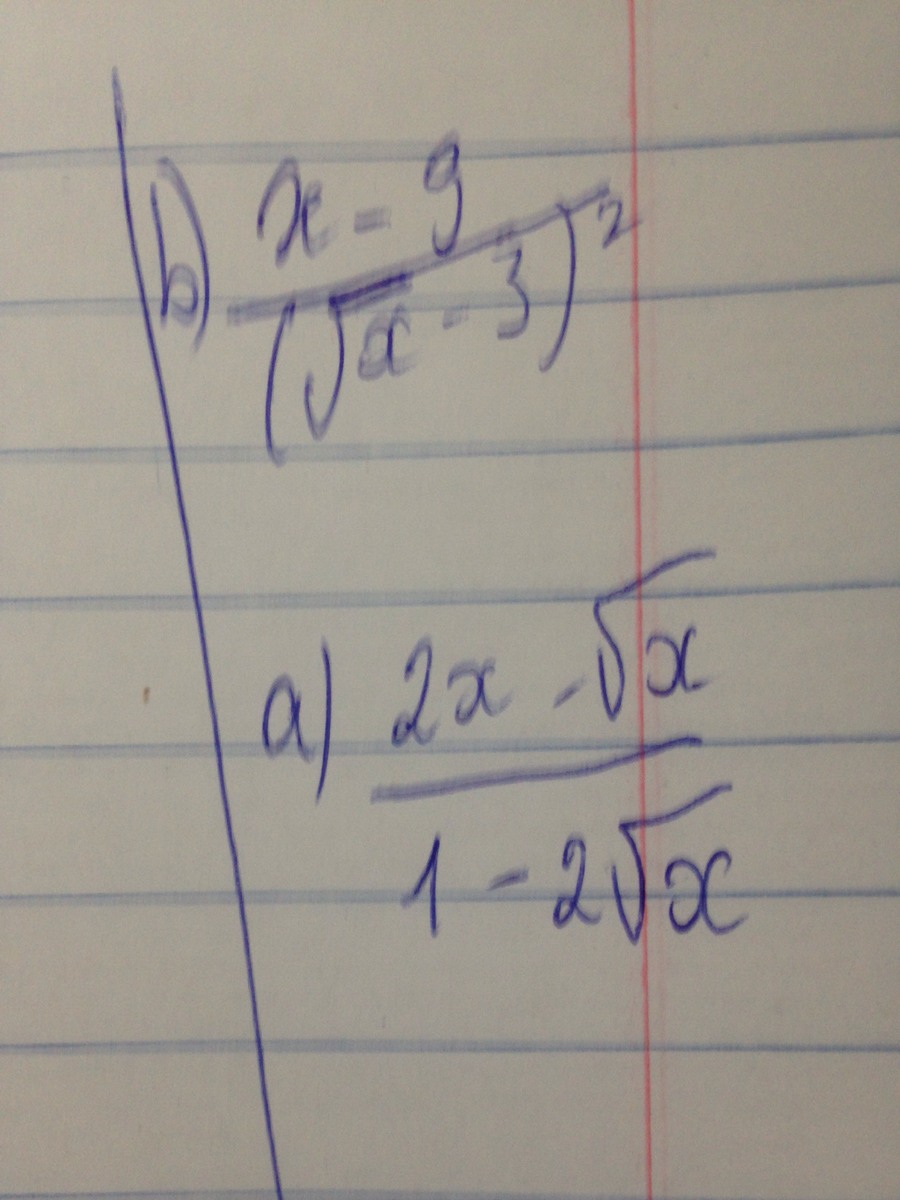 b) x - 9
(√x - 3)²
a) 2x - √x
1 - 2√x